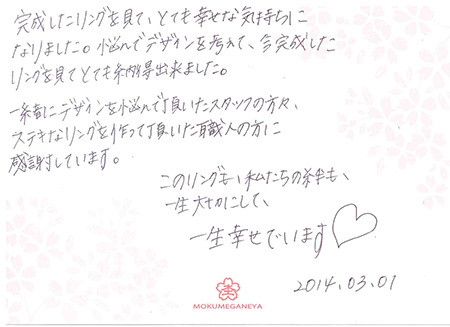 完成したリングを見て、とても幸せな気持ちに
なりました。悩んでデザインを考えて、今完成した
リングを見てとても納得出来ました。
一緒にデザインを悩んで頂いたスタッフの方々、
ステキなリングを作って頂いた職人の方に
感謝しています。
このリングも、私たちの絆も、
一生大切にして、
一生幸せでいます♡
2014.03.01
MOKUMEGANEYA